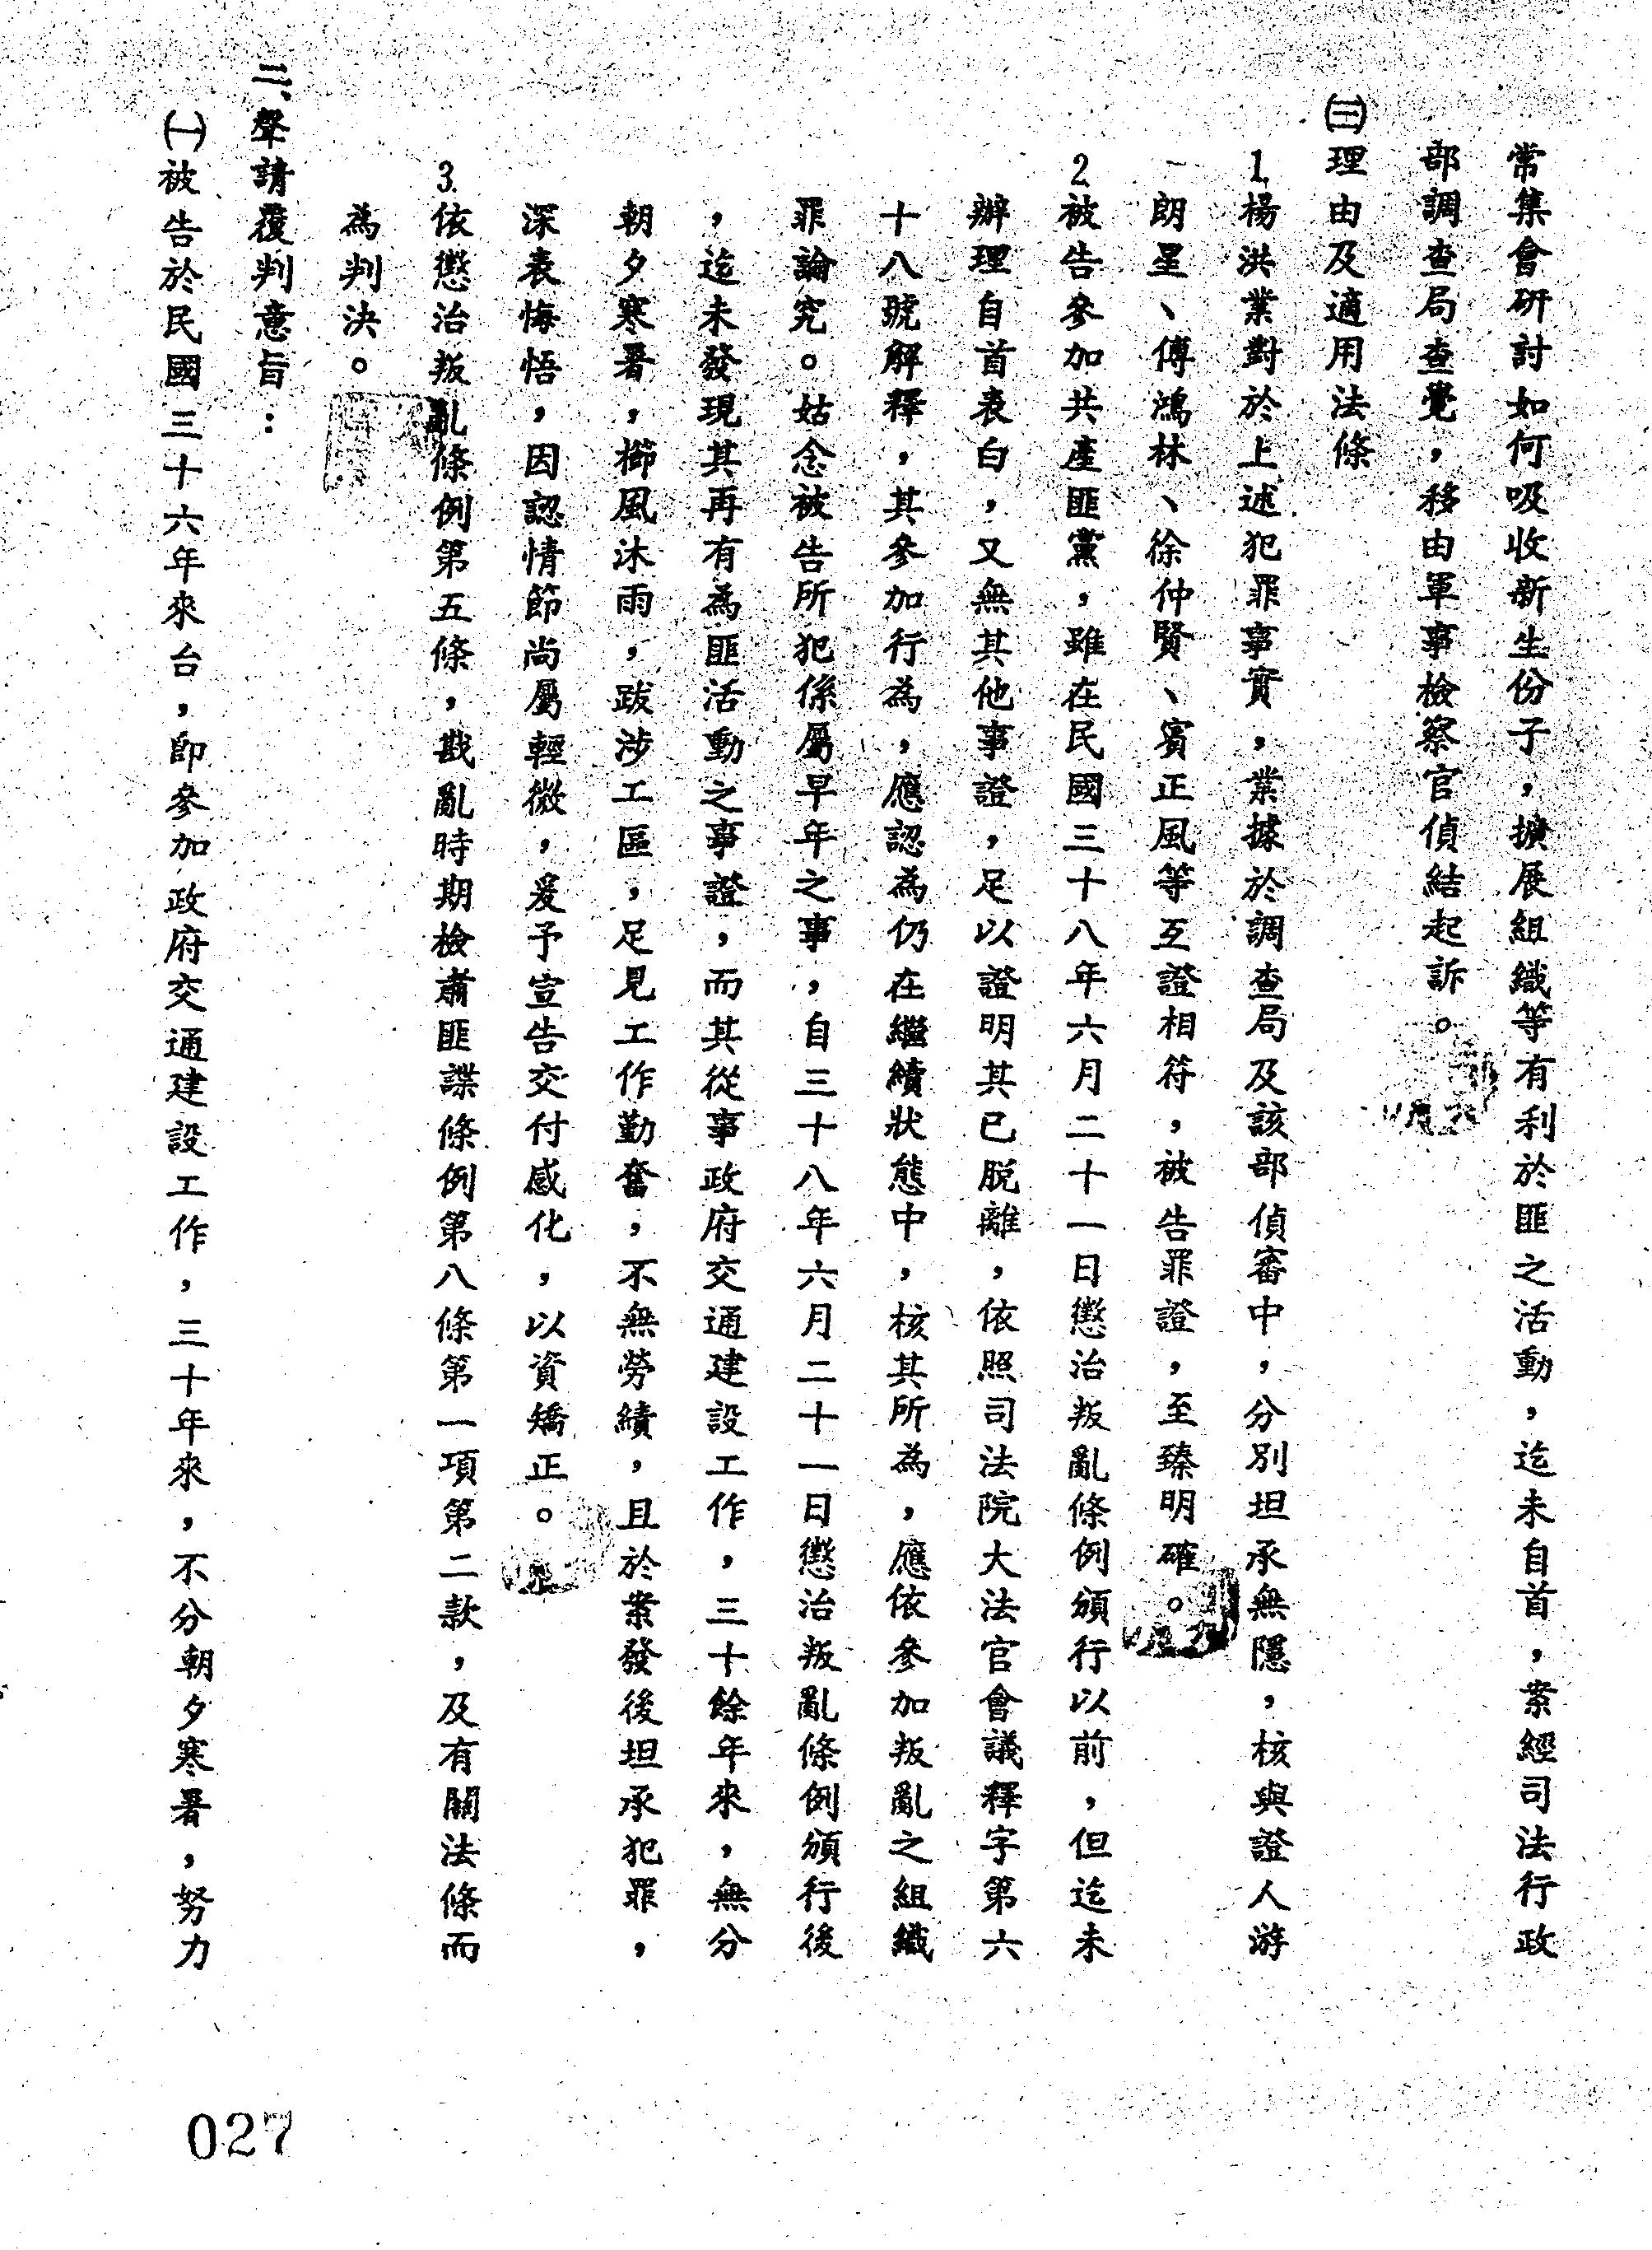 常集會研討如何吸收新生份子，擴展組織等有利於匪之活動，迄未自首，案經司法行政
部調查局查覺，移由軍事檢察官偵結起訴。
㈢理由及適用法條
1.楊洪業對於上述犯罪事實，業據於調查局及該部偵審中，分別坦承無隱，核與證人游
朗星、傅鴻林、徐仲賢、賓正風等互證相符，被告罪證，至臻明確。
2.被告參加共產匪黨，雖在民國三十八年六月二十一日懲治叛亂條例頒行以前，但迄未
辦理自首表白，又無其他事證，足以證明其已脫離，依照司法院大法官會議釋字第六
十八號解釋，其參加行為，應認為仍在繼續狀態中，核其所為，應依參加叛亂之組織
罪論究。姑念被告所犯係屬早年之事，自三十八年六月二十一日懲治叛亂條例頒行後
，迄未發現其再有為匪活動之事證，而其從事政府交通建設工作，三十餘年來，無分
朝夕寒暑，櫛風沐雨，跋涉工區，足見工作勤奮，不無勞績，且於案發後坦承犯罪，
深表悔悟，因認情節尚屬輕微，爰予宣告交付感化，以資矯正。
3.依懲治叛亂條例第五條，戡亂時期檢肅匪諜條例第八條第一項第二款，及有關法條而
為判決。
二、聲請覆判意旨：
㈠被告於民國三十六年來台，即參加政府交通建設工作，三十年來，不分朝夕寒暑，努力
027